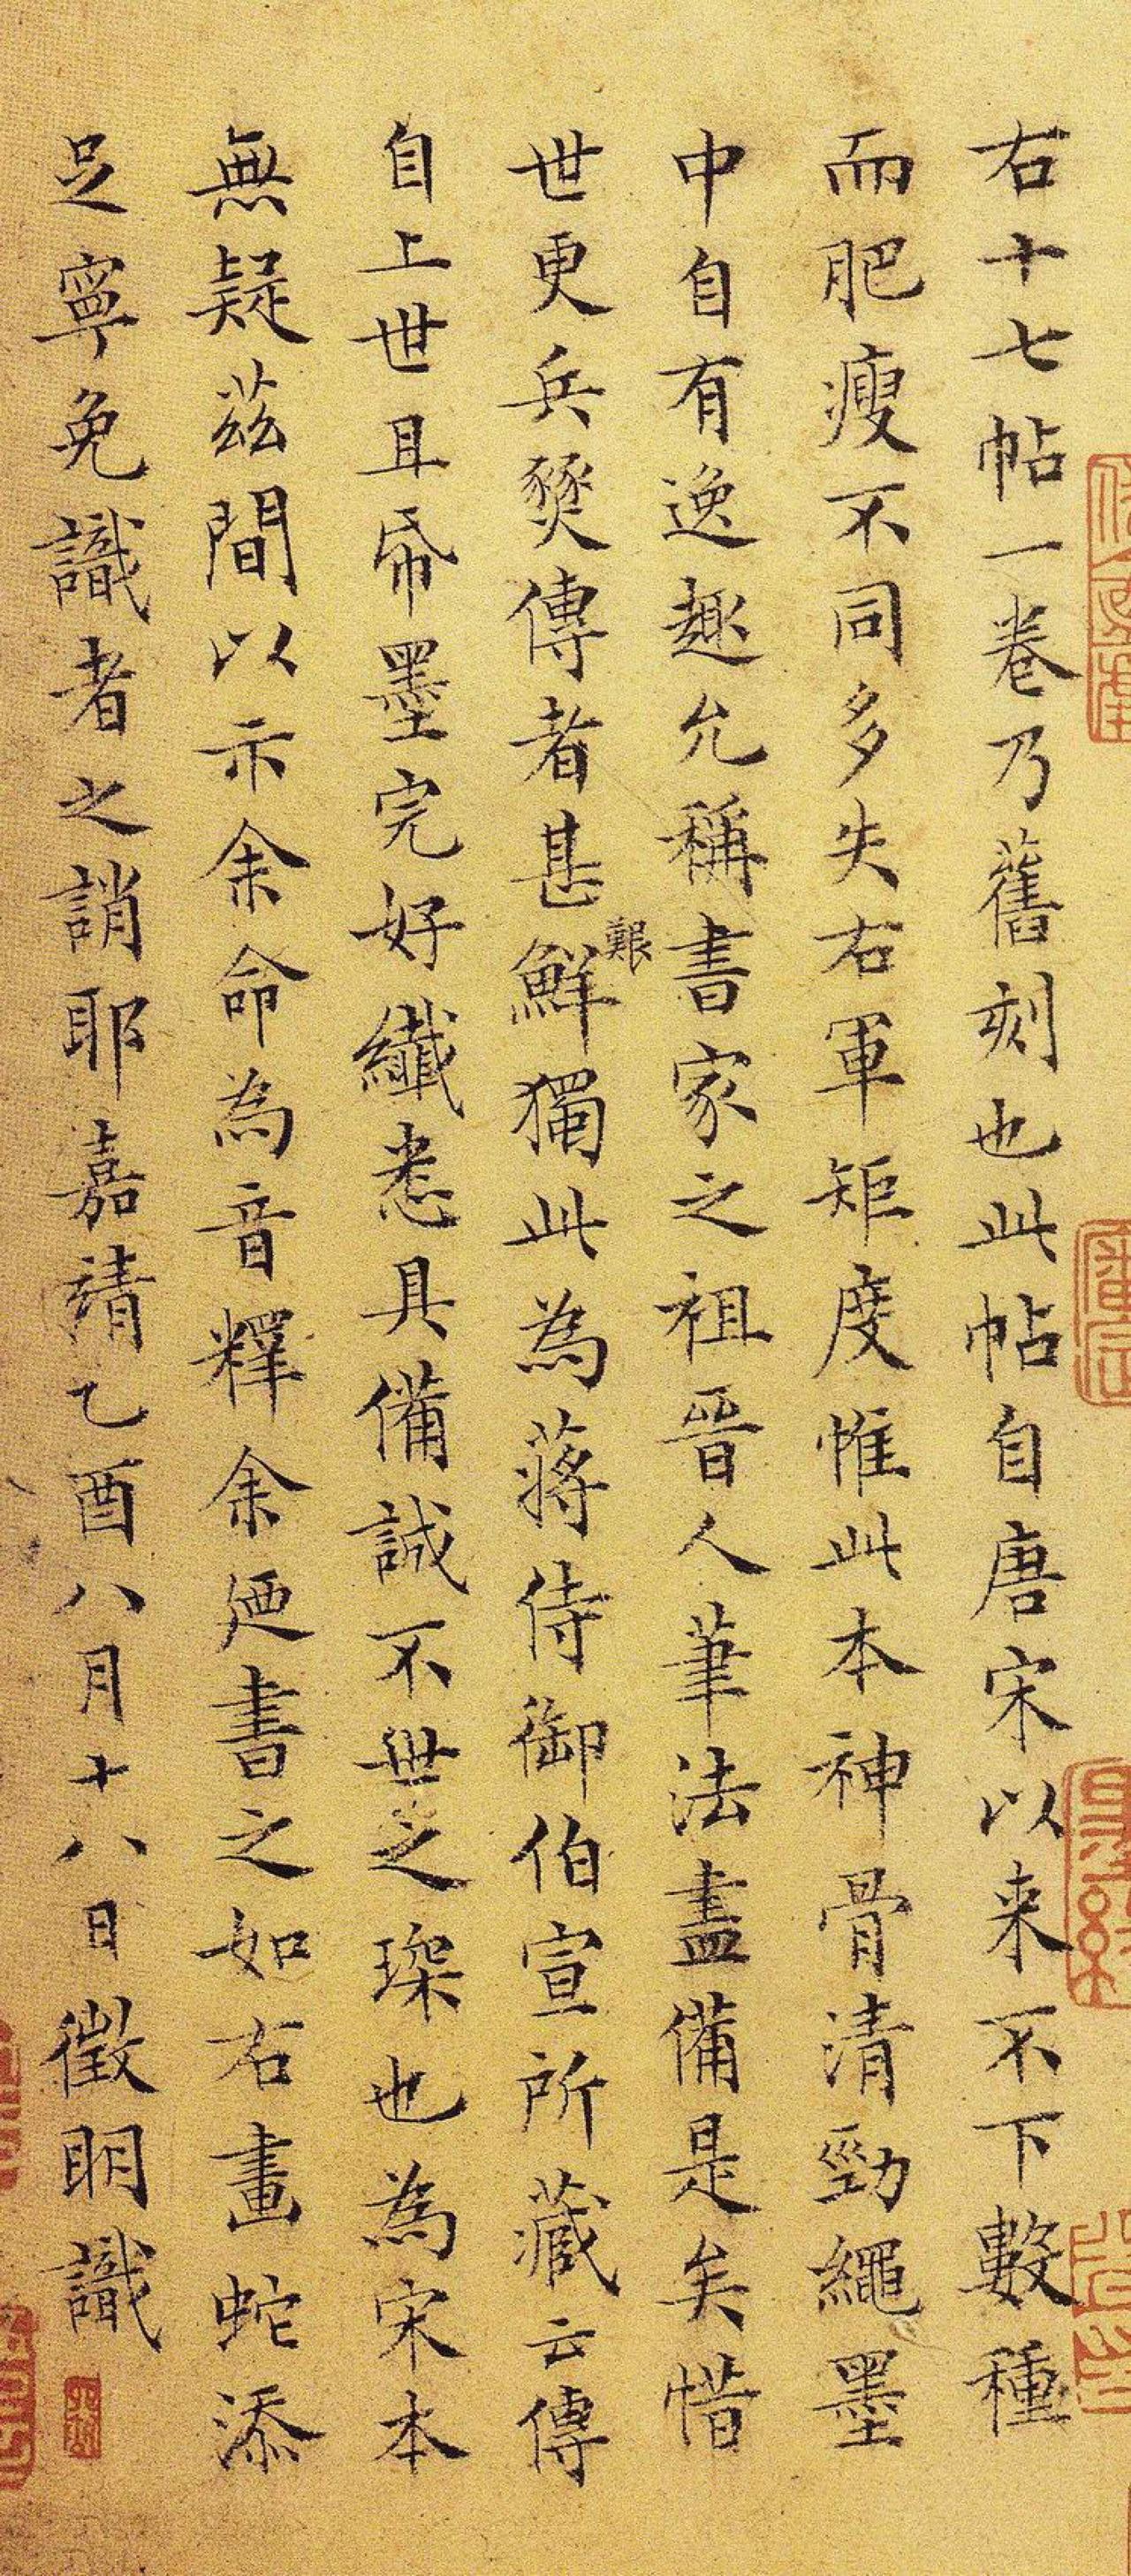 右十七帖一卷乃舊刻也此帖自唐宋以来不下數種
而肥瘦不同多失右軍矩度惟此本神骨清勁繩墨
中自有逸趣允稱書家之祖晉人筆法盡備是矣惜
世更兵燹傳者甚鮮獨此為蔣侍御伯宣所藏云傳
艱
自上世且帋墨完好纖悉具備誠不世之琛也為宋本
無疑茲間以示余命為音釋余廼書之如右畫蛇添
足寧免識者之誚耶嘉靖乙酉八月十八日徵明識